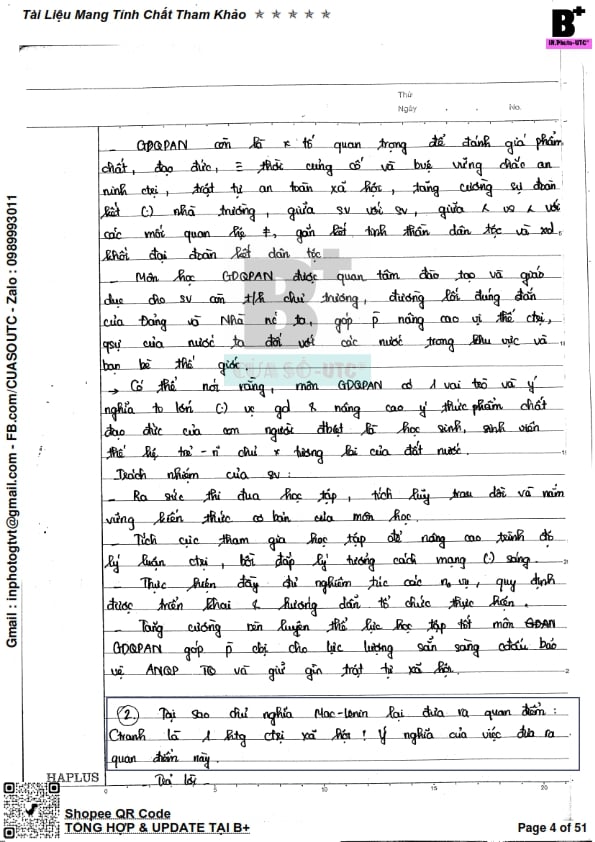 Tài Liệu Mang Tính Chất Tham Khảo ★ ★ ★ ★ ★
B+
IN.Photo-UTC*
Thứ
Ngày . . No.
- GDQPAN còn là x tố quan trọng để đánh giá phẩm
chất, đạo đức, Ξ thời củng cố và bvệ vững chắc an
ninh ctrị, trật tự an toàn xã hội, tăng cường sự đoàn
kết (:) nhà trường, giữa sv với sv, giữa & với
các mối quan hệ ≠, gắn kết tinh thần dân tộc và xd
khối đại đoàn kết dân tộc
- Môn học GDQPAN được quan tâm đào tạo và giáo
dục cho sv còn t/h chủ trương, đường lối đúng đắn
của Đảng và Nhà nc ta, góp p̄ nâng cao vị thế ctrị,
qsự của nước ta đối với các nước trong khu vực và
bạn bè thế giới.
→ Có thể nói rằng, môn GDQPAN có 1 vai trò và ý
nghĩa to lớn (:) vc gd & nâng cao ý thức phẩm chất
đạo đức của con người đbiệt là học sinh, sinh viên
thế hệ trẻ - n chủ x tương lai của đất nước.
Trách nhiệm của sv :
- Ra sức thi đua học tập, tích lũy trau dồi và nắm
vững kiến thức cơ bản của môn học.
- Tích cực tham gia học tập để nâng cao trình độ
lý luận ctrị, bồi đắp lý tưởng cách mạng (:) sáng.
- Thực hiện đầy đủ nghiêm túc các n.vụ, quy định
được triển khai & hướng dẫn tổ chức thực hiện.
- Tăng cường rèn luyện thể lực học tập tốt môn GDAN
GDQPAN góp p̄ cbị cho lực lượng sẵn sàng cđấu bảo
vệ ANQP TQ và giữ gìn trật tự xã hội.
(2.) Tại sao chủ nghĩa Mac-Lenin lại đưa ra quan điểm :
Ctranh là 1 htg ctrị xã hội ! Ý nghĩa của việc đưa ra
quan điểm này.
Trả lời
HAPLUS 0 5 10 15 20
B+
CỬA SỐ-UTC*
Gmail : inphotogtvt@gmail.com - FB.com/CUASOUTC - Zalo : 0989993011
Shopee QR Code
TỔNG HỢP & UPDATE TẠI B+
Page 4 of 51